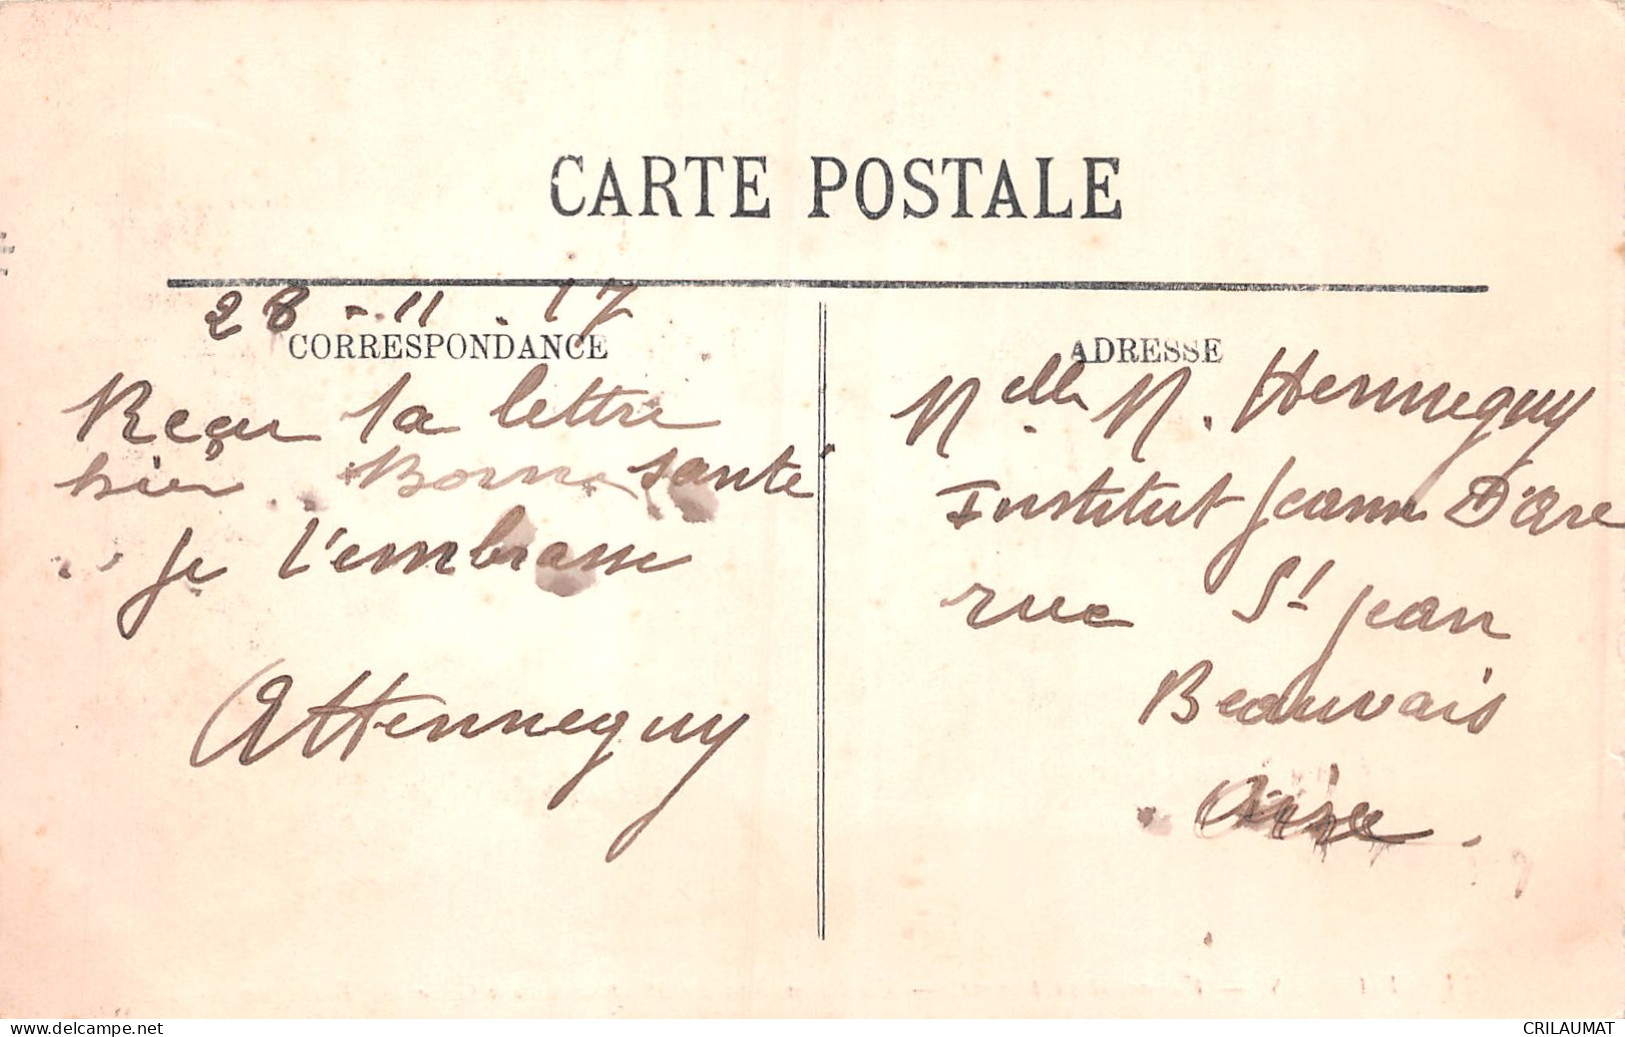 CARTE POSTALE
28 - 11 . 17
CORRESPONDANCE
Reçu ta lettre
hier. Bonne santé
je t'embrasse
AHennequy
ADRESSE
Melle M. Hennequy
Institut Jeanne D'Arc
rue St Jean
Beauvais
Oise.
www.delcampe.net
CRILAUMAT